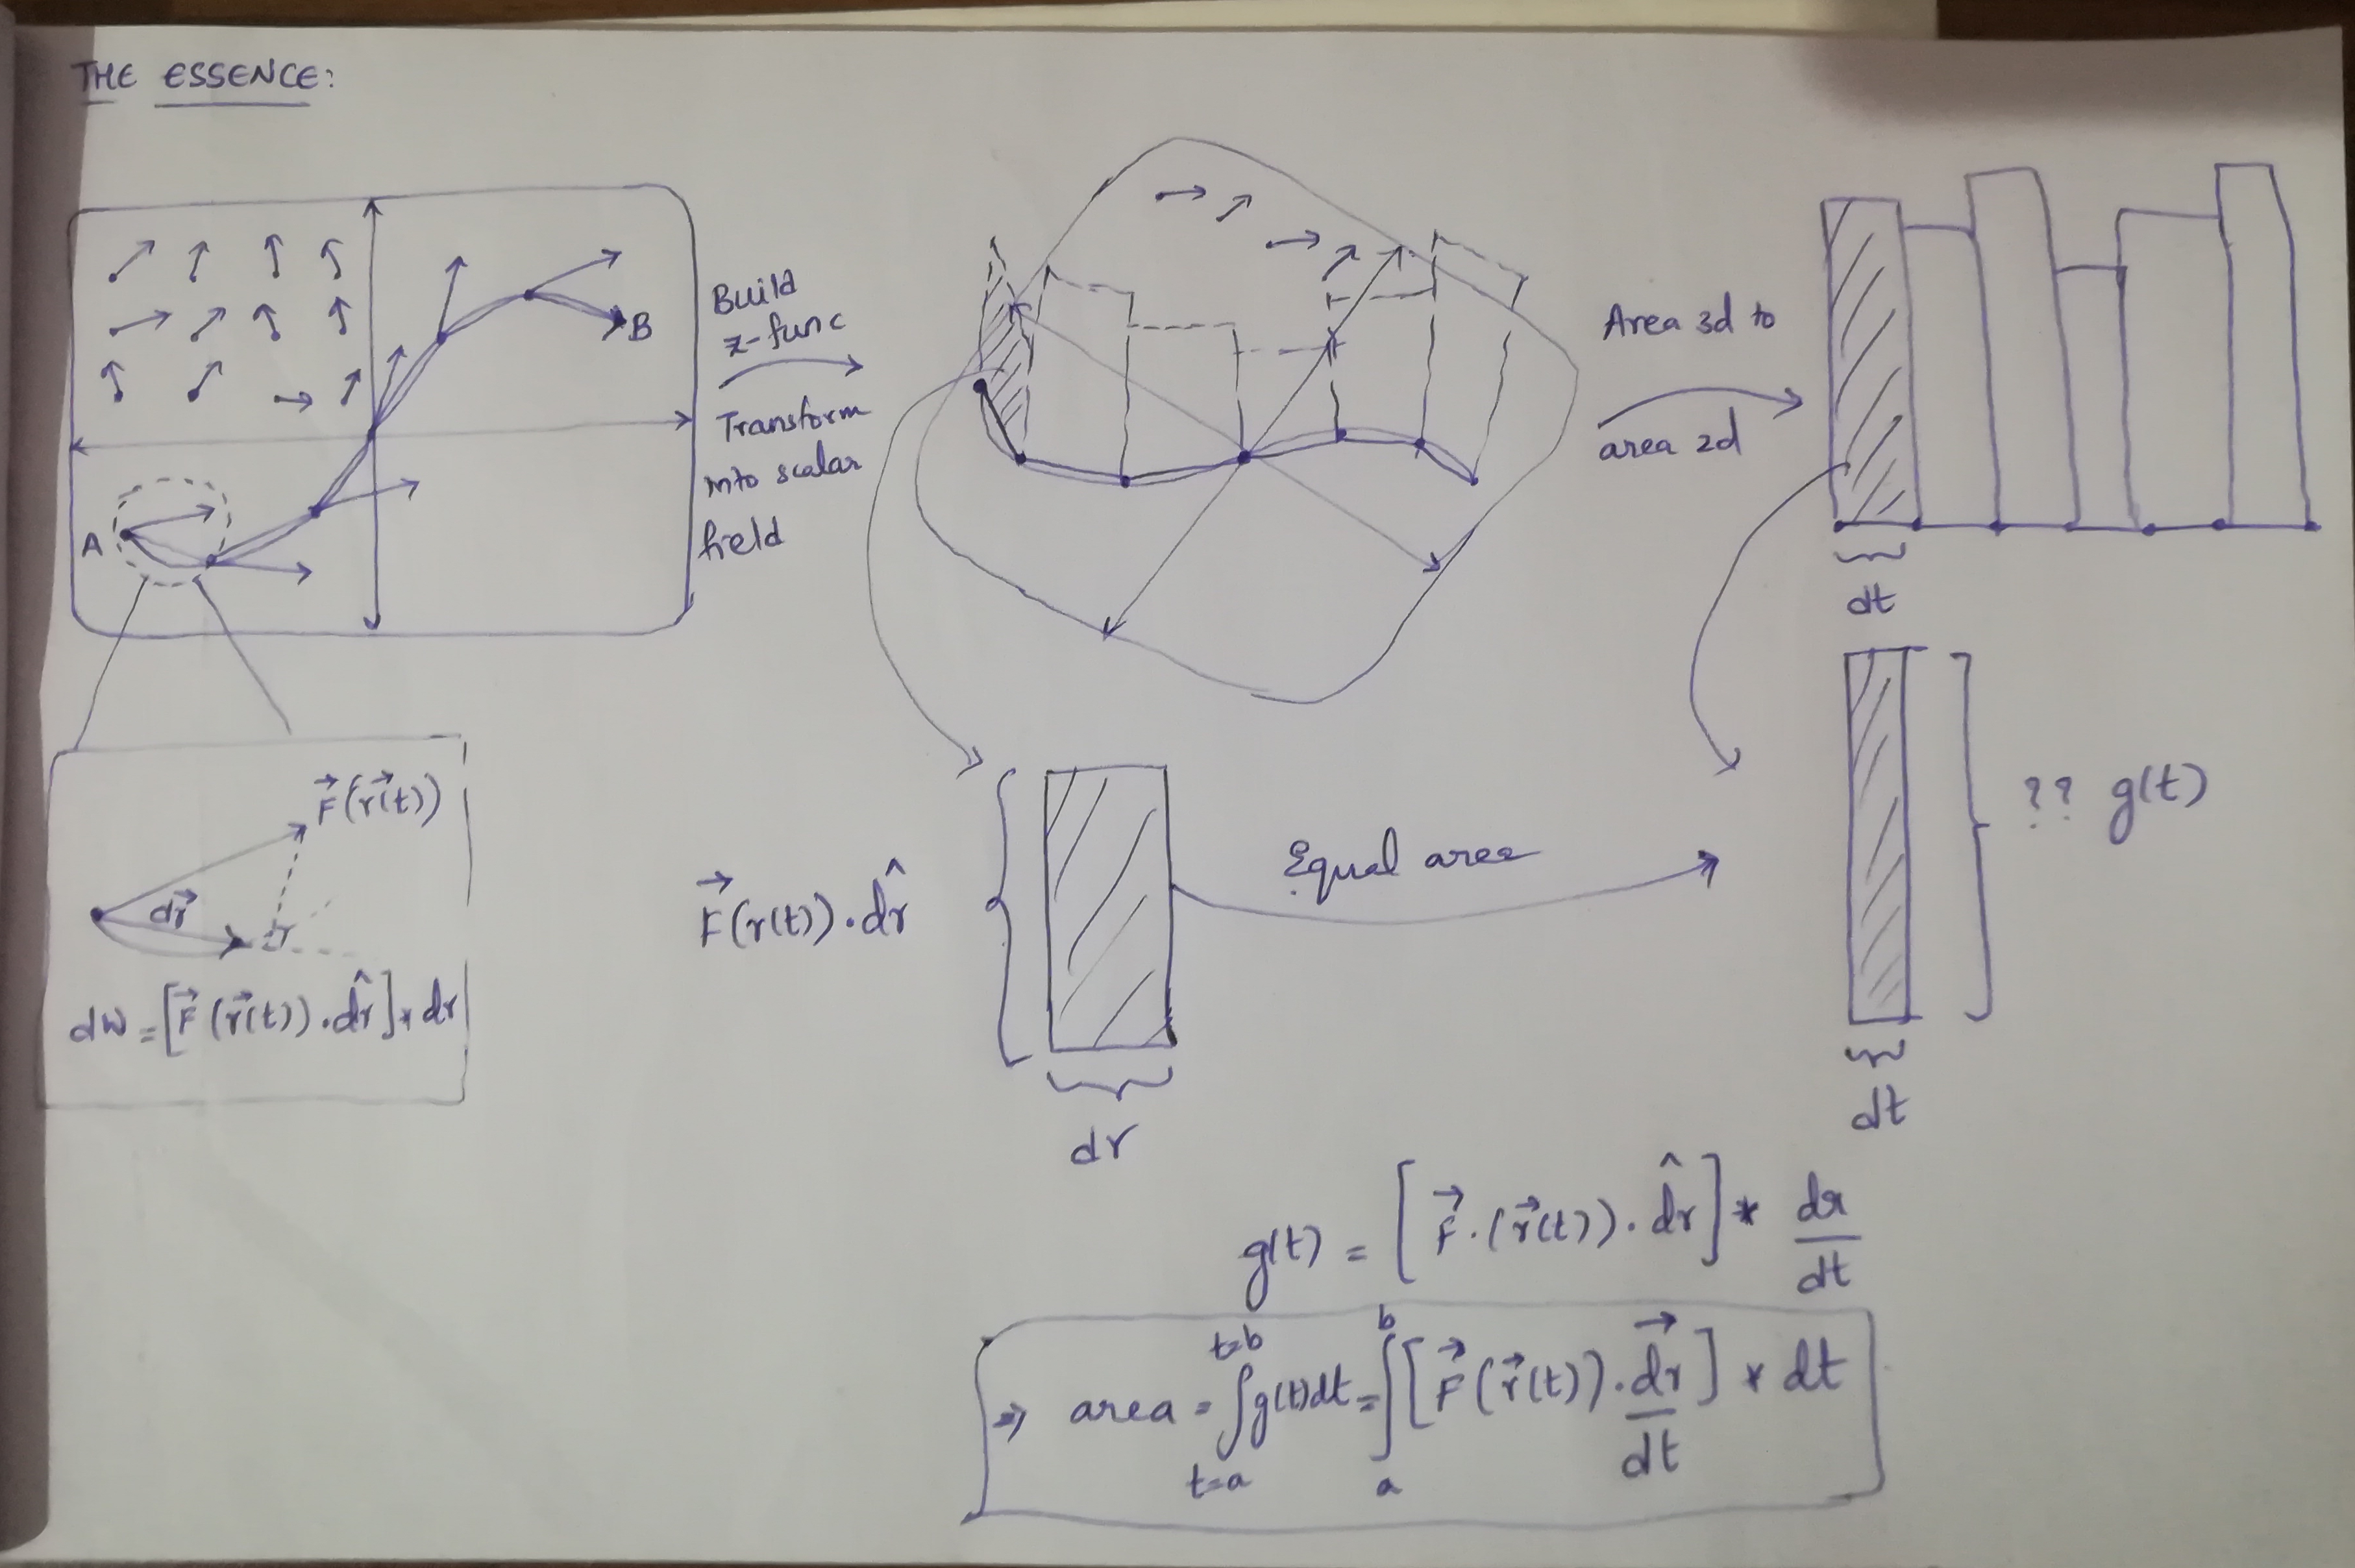 THE ESSENCE:
B
A
Build
z-func
Transform
into scalar
field
Area 3d to
area 2d
dt
F⃗(r⃗(t))
dr⃗
dW = [F⃗(r⃗(t)).dr̂] * dr
F⃗(r(t)).dr̂
dr
Equal area
?? g(t)
dt
g(t) = [F⃗.(r⃗(t)).dr̂] * dr/dt
⇒ area = ∫_{t=a}^{t=b} g(t)dt = ∫_a^b [F⃗(r⃗(t)).dr⃗/dt] * dt